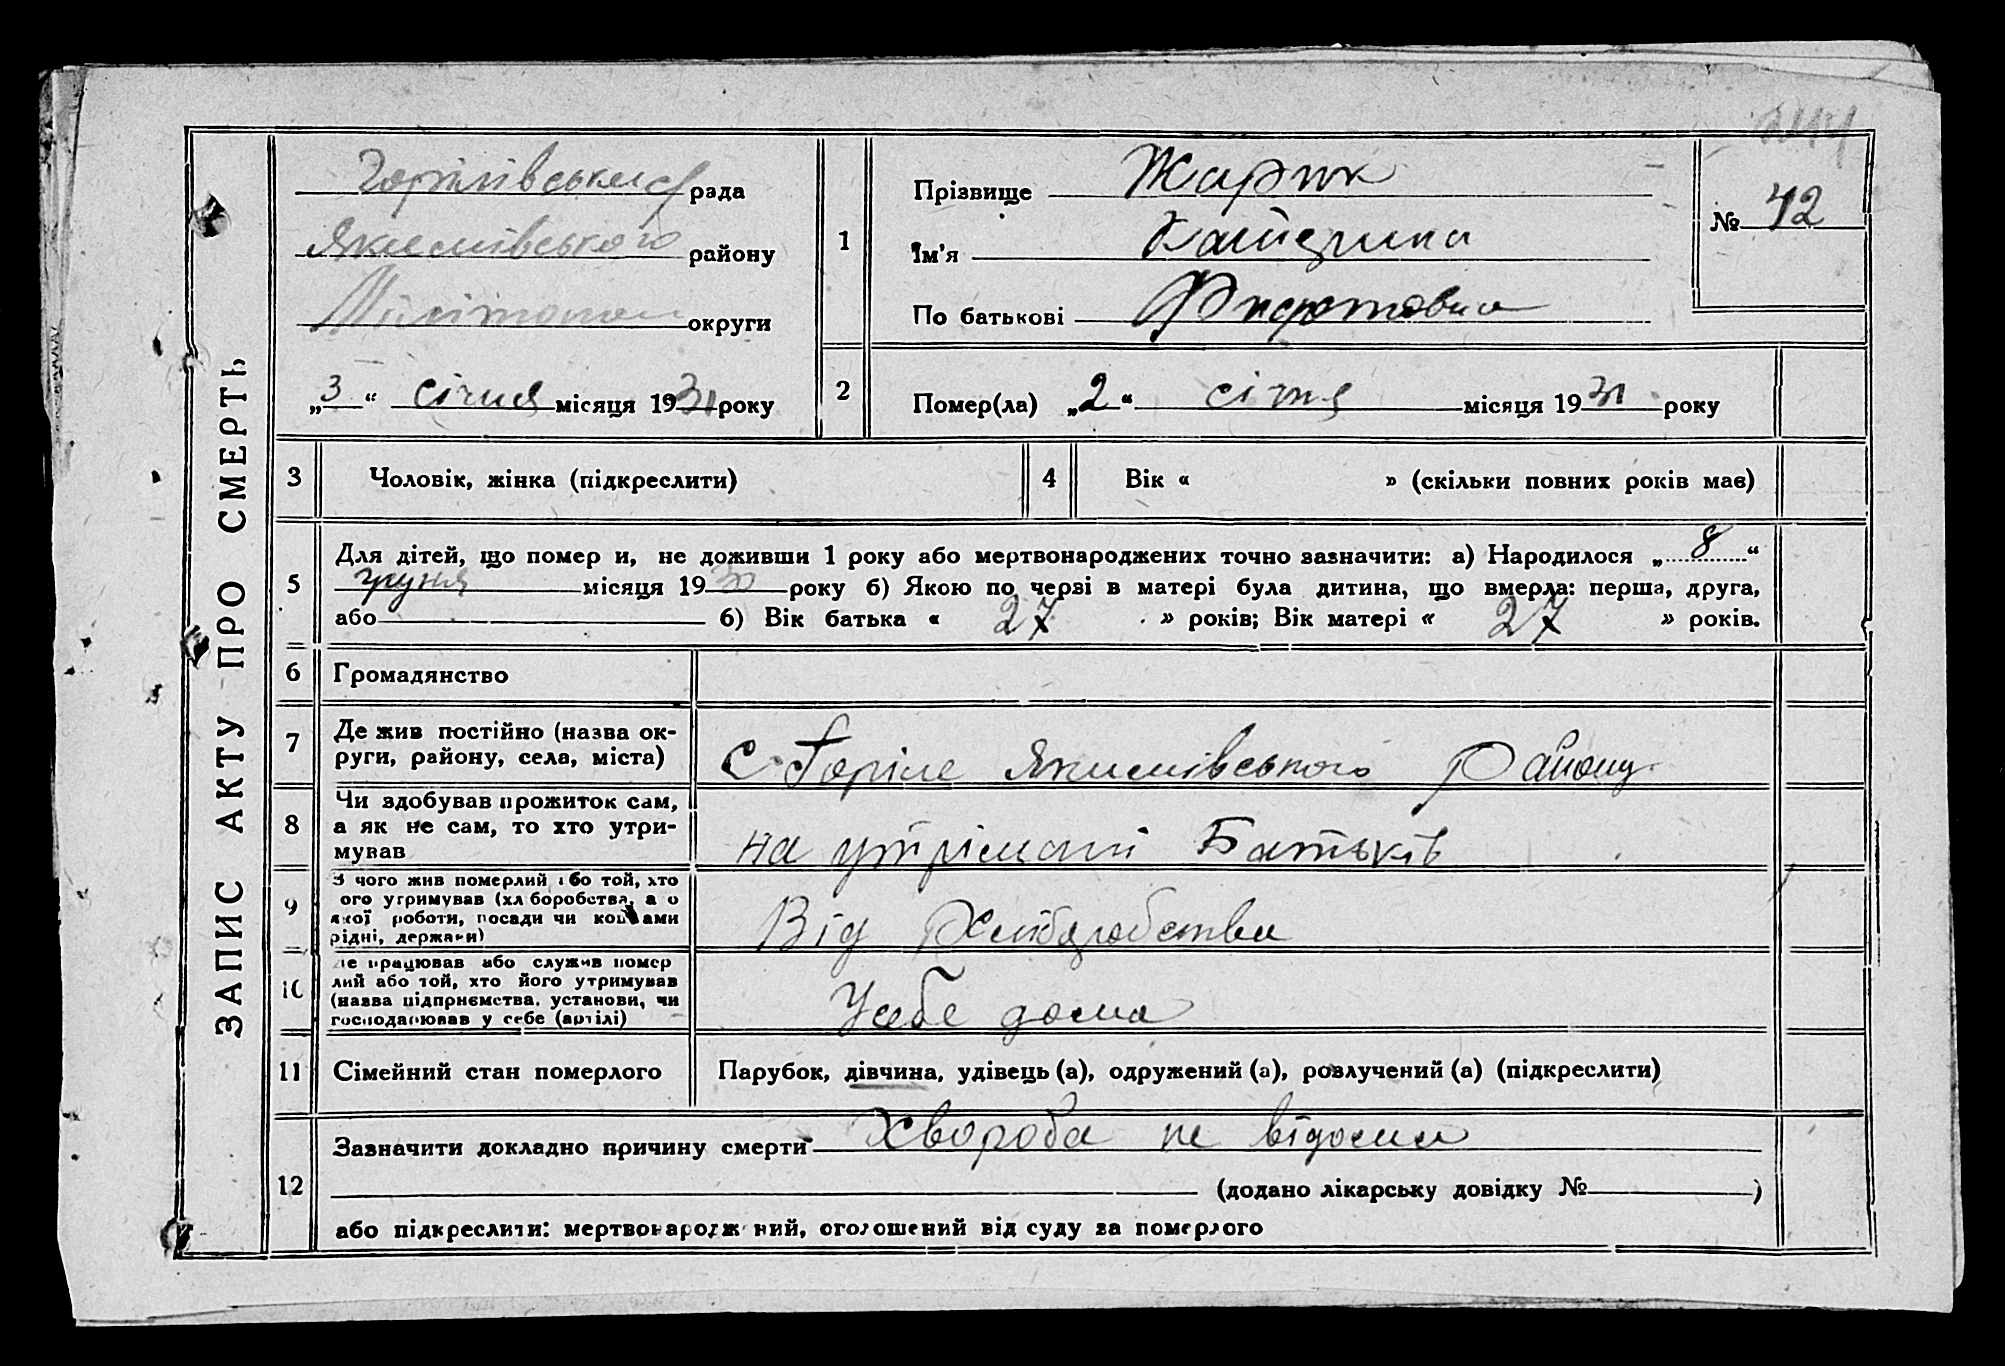 ЗАПИС АКТУ ПРО СМЕРТЬ
Горілівська с/ рада
Якимівського району
округи
„3“ січня місяця 1931 року
1
Прізвище Жарик
Ім'я Катерина
По батькові
№ 42
2
Помер(ла) „2“ січня місяця 1931 року
3
Чоловік, жінка (підкреслити)
4
Вік « » (скільки повних років має)
5
Для дітей, що помер и, не доживши 1 року або мертвонароджених точно зазначити: а) Народилося „8“
грудня місяця 1930 року б) Якою по черзі в матері була дитина, що вмерла: перша, друга,
або б) Вік батька « 27 » років; Вік матері « 27 » років.
6
Громадянство
7
Де жив постійно (назва ок-
руги, району, села, міста)
с. Горіле Якимівського Району
8
Чи здобував прожиток сам,
а як не сам, то хто утри-
мував
на утрімані Батьків
9
З чого жив померлий або той, хто
ого утримував (хл боробства, а о
якої роботи, посади чи коштами
рідні, держави)
Від Хліборобства
10
Де працював або служив помер
лий або той, хто його утримував
(назва підприємства, установи, чи
господарював у себе (артілі)
У себе дома
11
Сімейний стан померлого
Парубок, дівчина, удівець (а), одружений (а), розлучений (а) (підкреслити)
12
Зазначити докладно причину смерти Хвороба не відома
(додано лікарську довідку № )
або підкреслити: мертвонародж ний, оголошений від суду за померлого